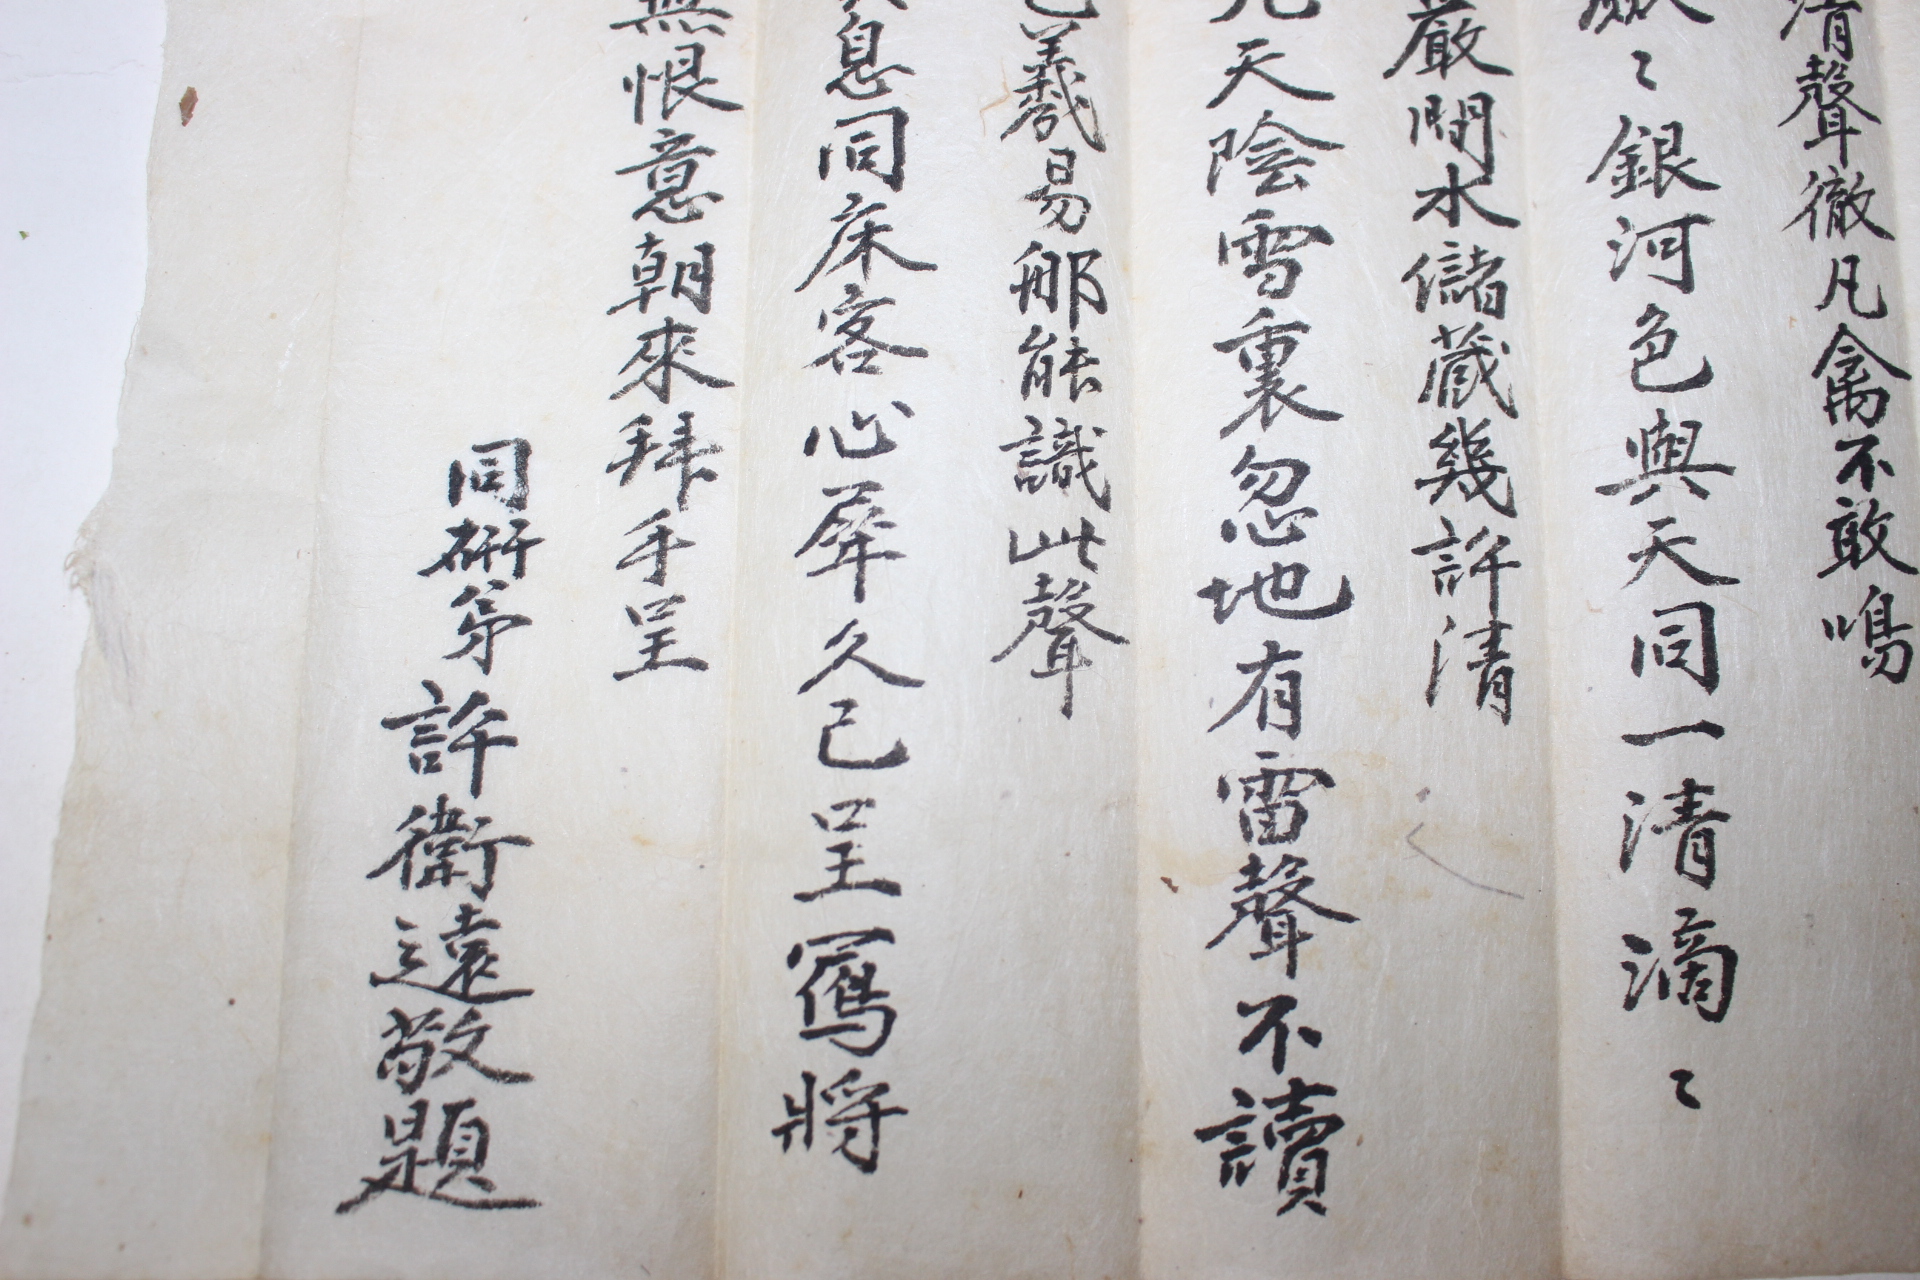 清聲徹凡禽不敢鳴
〻銀河色與天同一清滴〻
嚴間水儲藏幾許清
天陰雪裏忽地有雷聲不讀
羲易那能識此聲
息同床客心犀久已呈寫將
無恨意朝來拜手呈
同硏弟許衛遠敬題